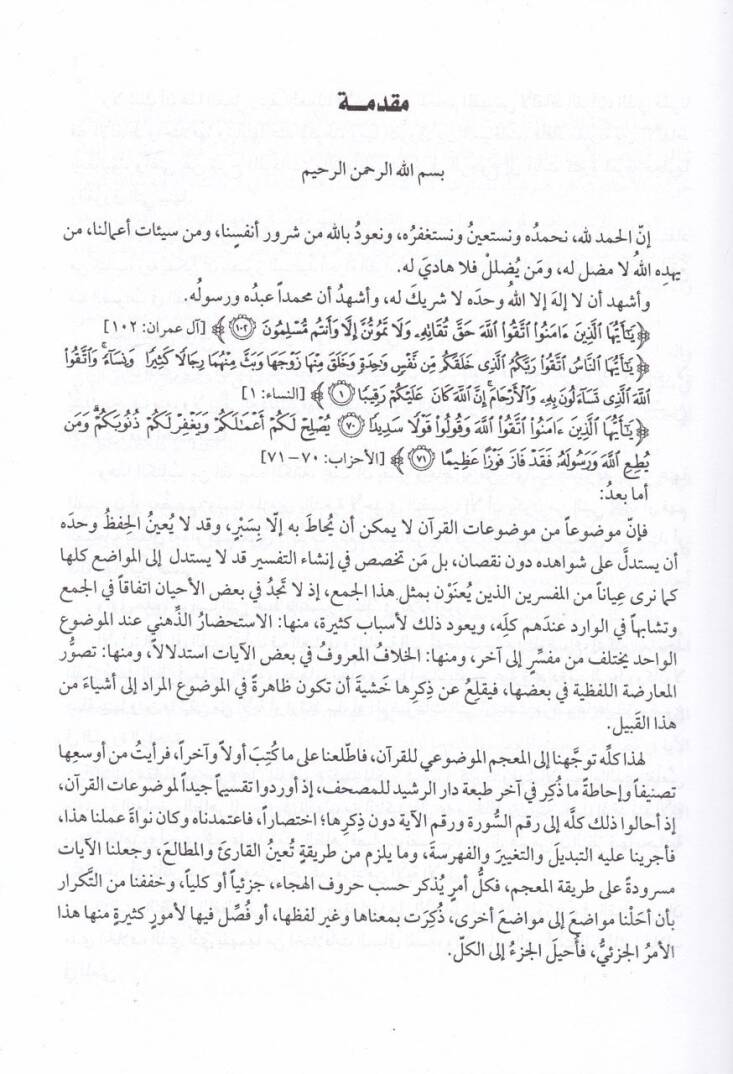 مقدمــة
بسم الله الرحمن الرحيم
إنّ الحمد لله، نحمدُه ونستعينُ ونستغفرُه، ونعوذُ بالله من شرور أنفسِنا، ومن سيئات أعمالنا، من
يهدِه اللهُ لا مضل له، ومَن يُضللْ فلا هاديَ له.
وأشهد أن لا إلهَ إلا اللهُ وحدَه لا شريكَ له، وأشهدُ أن محمداً عبدُه ورسولُه.
﴿يَٰٓأَيُّهَا ٱلَّذِينَ ءَامَنُوا۟ ٱتَّقُوا۟ ٱللَّهَ حَقَّ تُقَاتِهِۦ وَلَا تَمُوتُنَّ إِلَّا وَأَنتُم مُّسْلِمُونَ ١٠٢﴾ [آل عمران: ١٠٢]
﴿يَٰٓأَيُّهَا ٱلنَّاسُ ٱتَّقُوا۟ رَبَّكُمُ ٱلَّذِى خَلَقَكُم مِّن نَّفْسٍ وَٰحِدَةٍ وَخَلَقَ مِنْهَا زَوْجَهَا وَبَثَّ مِنْهُمَا رِجَالًا كَثِيرًا وَنِسَآءً ۚ وَٱتَّقُوا۟
ٱللَّهَ ٱلَّذِى تَسَآءَلُونَ بِهِۦ وَٱلْأَرْحَامَ ۚ إِنَّ ٱللَّهَ كَانَ عَلَيْكُمْ رَقِيبًا ١﴾ [النساء: ١]
﴿يَٰٓأَيُّهَا ٱلَّذِينَ ءَامَنُوا۟ ٱتَّقُوا۟ ٱللَّهَ وَقُولُوا۟ قَوْلًا سَدِيدًا ٧٠ يُصْلِحْ لَكُمْ أَعْمَٰلَكُمْ وَيَغْفِرْ لَكُمْ ذُنُوبَكُمْ ۗ وَمَن
يُطِعِ ٱللَّهَ وَرَسُولَهُۥ فَقَدْ فَازَ فَوْزًا عَظِيمًا ٧١﴾ [الأحزاب: ٧٠-٧١]
أما بعدُ:
فإنّ موضوعاً من موضوعات القرآن لا يمكن أن يُحاطَ به إلّا بِسَبْرٍ، وقد لا يُعينُ الحِفظُ وحدَه
أن يستدلَّ على شواهده دون نقصان، بل مَن تخصص في إنشاء التفسير قد لا يستدل إلى المواضع كلها
كما نرى عِياناً من المفسرين الذين يُعنَوْن بمثل هذا الجمع، إذ لا تجدُ في بعض الأحيان اتفاقاً في الجمع
وتشابهاً في الوارد عندَهم كلِّه، ويعود ذلك لأسباب كثيرة، منها: الاستحضارُ الذِّهني عند الموضوع
الواحد يختلف من مفسِّر إلى آخر، ومنها: الخلافُ المعروفُ في بعض الآيات استدلالاً، ومنها: تصوُّر
المعارضة اللفظية في بعضها، فيقلعُ عن ذِكرِها خَشيةَ أن تكون ظاهرةً في الموضوع المراد إلى أشياءَ من
هذا القَبيل.
لهذا كلِّه توجَّهنا إلى المعجم الموضوعي للقرآن، فاطَّلعنا على ما كُتِبَ أولاً وآخراً، فرأيتُ من أوسعِها
تصنيفاً وإحاطةً ما ذُكِرَ في آخر طبعة دار الرشيد للمصحف، إذ أوردوا تقسيماً جيداً لموضوعات القرآن،
إذ أحالوا ذلك كلَّه إلى رقم السُّورة ورقم الآية دون ذِكرِها؛ اختصاراً، فاعتمدناه وكان نواةَ عملنا هذا،
فأجرينا عليه التبديلَ والتغييرَ والفهرسةَ، وما يلزم من طريقةٍ تُعينُ القارئَ والمطالعَ، وجعلنا الآيات
مسرودةً على طريقة المعجم، فكلُّ أمرٍ يُذكر حسب حروف الهجاء، جزئياً أو كلياً، وخففنا من التَّكرار
بأن أحَلْنا مواضعَ إلى مواضعَ أخرى، ذُكِرَت بمعناها وغير لفظها، أو فُصِّل فيها لأمورٍ كثيرةٍ منها هذا
الأمرُ الجزئيُّ، فأُحيلَ الجزءُ إلى الكلّ.